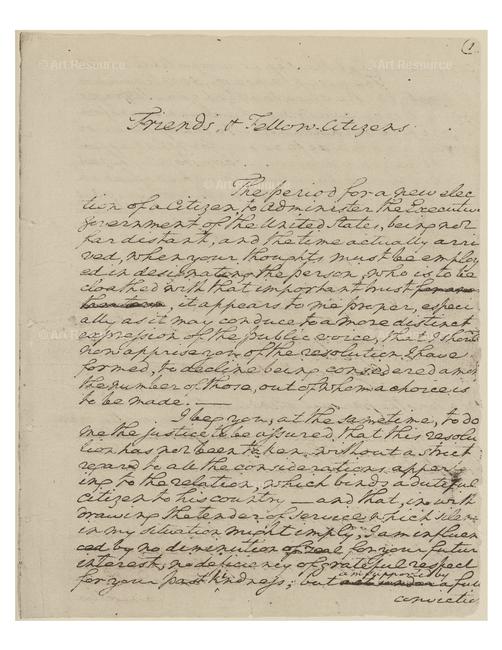 (1
Friends, & Fellow-Citizens
The period for a new elec
tion of a Citizen, to Administer the Executive
Government of the United States, being not
far distant, and the time actually arri
ved, when your thoughts must be employ
ed in designating the person, who is to be
cloathed with that important trust for an
other term, it appears to me proper, especi
ally as it may conduce to a more distinct
expression of the public voice, that I should
now apprise you of the resolution I have
formed, to decline being considered among
the number of those, out of whom a choice is
to be made. —
I beg you, at the same time, to do
me the justice to be assured, that this resolu
tion has not been taken, without a strict
regard to all the considerations apper
ing to the relation, which binds a dutiful
Citizen to his country — and that, in with
drawing the tender of service which silence
in my situation might imply, I am influen
ced by no diminution of zeal for your future
interest, no deficiency of grateful respect
am supported by
for your past kindness; but a full
convictio
© Art Resource
© Art Resource
© Art Resource
© Art Resource
© Art Resource